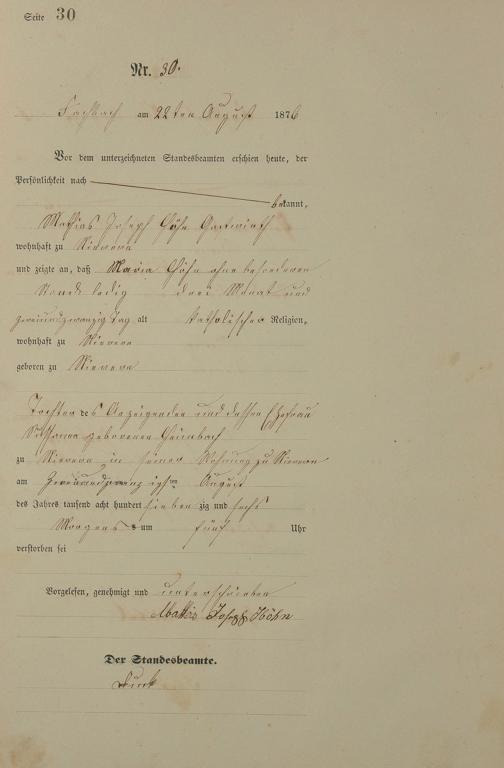 Seite 30
Nr. 30.
Fachbach am 22ten August 1876
Vor dem unterzeichneten Standesbeamten erschien heute, der
Persönlichkeit nach
bekannt,
Mathias Joseph Höhn Gastwirth
wohnhaft zu Nievern
und zeigte an, daß Maria Höhn ohne besonderen
Stand ledig drei Monat und
zweiundzwanzig Tag alt katholischer Religion,
wohnhaft zu Nievern
geboren zu Nievern
Tochter des Anzeigenden und dessen Ehefrau
Susanna geborenen
zu Nievern in seiner Wohnung zu Nievern
am Zweiundzwanzigsten August
des Jahres tausend acht hundert siebenzig und sechs
Morgens um fünf Uhr
verstorben sei
Vorgelesen, genehmigt und unterschrieben
Mathias Joseph Höhn
Der Standesbeamte.